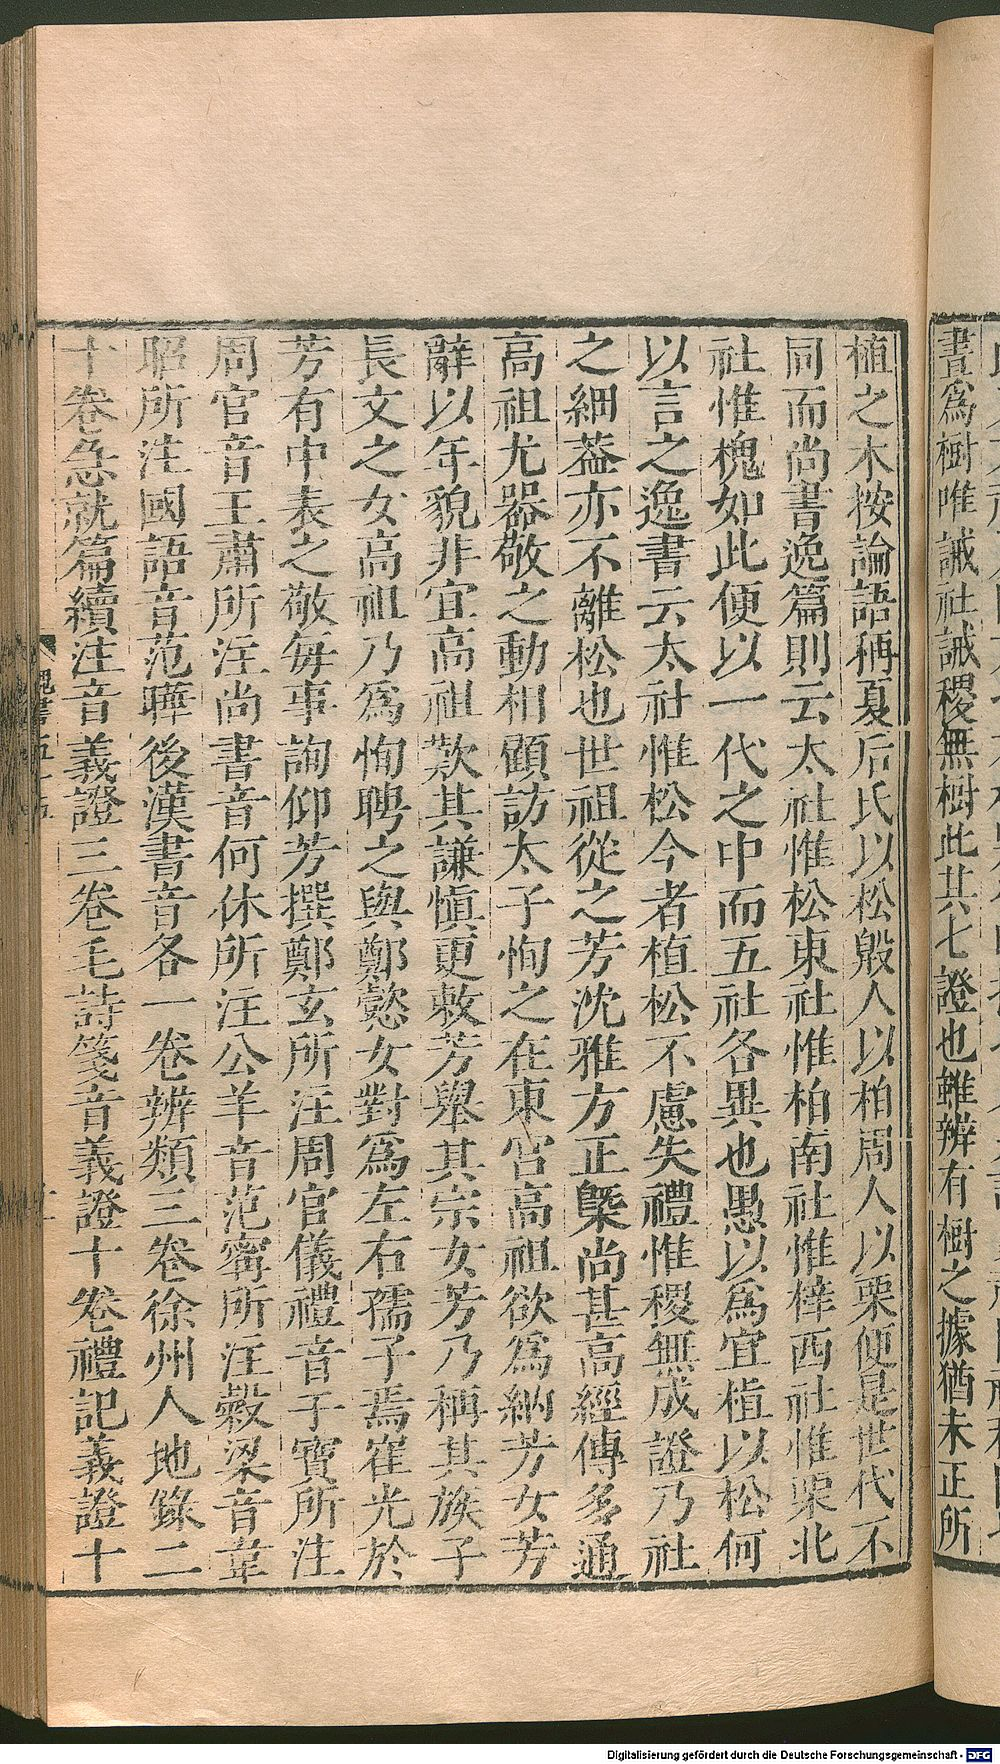 晝爲樹唯誡社誡稷無樹此其七證也雖辨有樹之據猶未正所
植之木按論語稱夏后氏以松殷人以柏周人以栗便是世代不
同而尚書逸篇則云太社惟松東社惟柏南社惟梓西社惟栗北
社惟槐如此便以一代之中而五社各異也愚以爲宜植以松何
以言之逸書云太社惟松今者植松不慮失禮惟稷無成證乃社
之細葢亦不離松也世祖從之芳沈雅方正槩尚甚高經傳多通
高祖尤器敬之動相顧訪太子恂之在東宮高祖欲爲納芳女芳
辭以年貌非宜高祖歎其謙愼更敕芳舉其宗女芳乃稱其族子
長文之女高祖乃爲恂聘之與鄭懿女對爲左右孺子焉崔光於
芳有中表之敬每事詢仰芳撰鄭玄所注周官儀禮音干寶所注
周官音王肅所注尚書音何休所注公羊音范甯所注穀梁音韋
昭所注國語音范曄後漢書音各一卷辨類三卷徐州人地錄二
十卷急就篇續注音義證三卷毛詩箋音義證十卷禮記義證十
魏書五十五
Digitalisierung gefördert durch die Deutsche Forschungsgemeinschaft - DFG